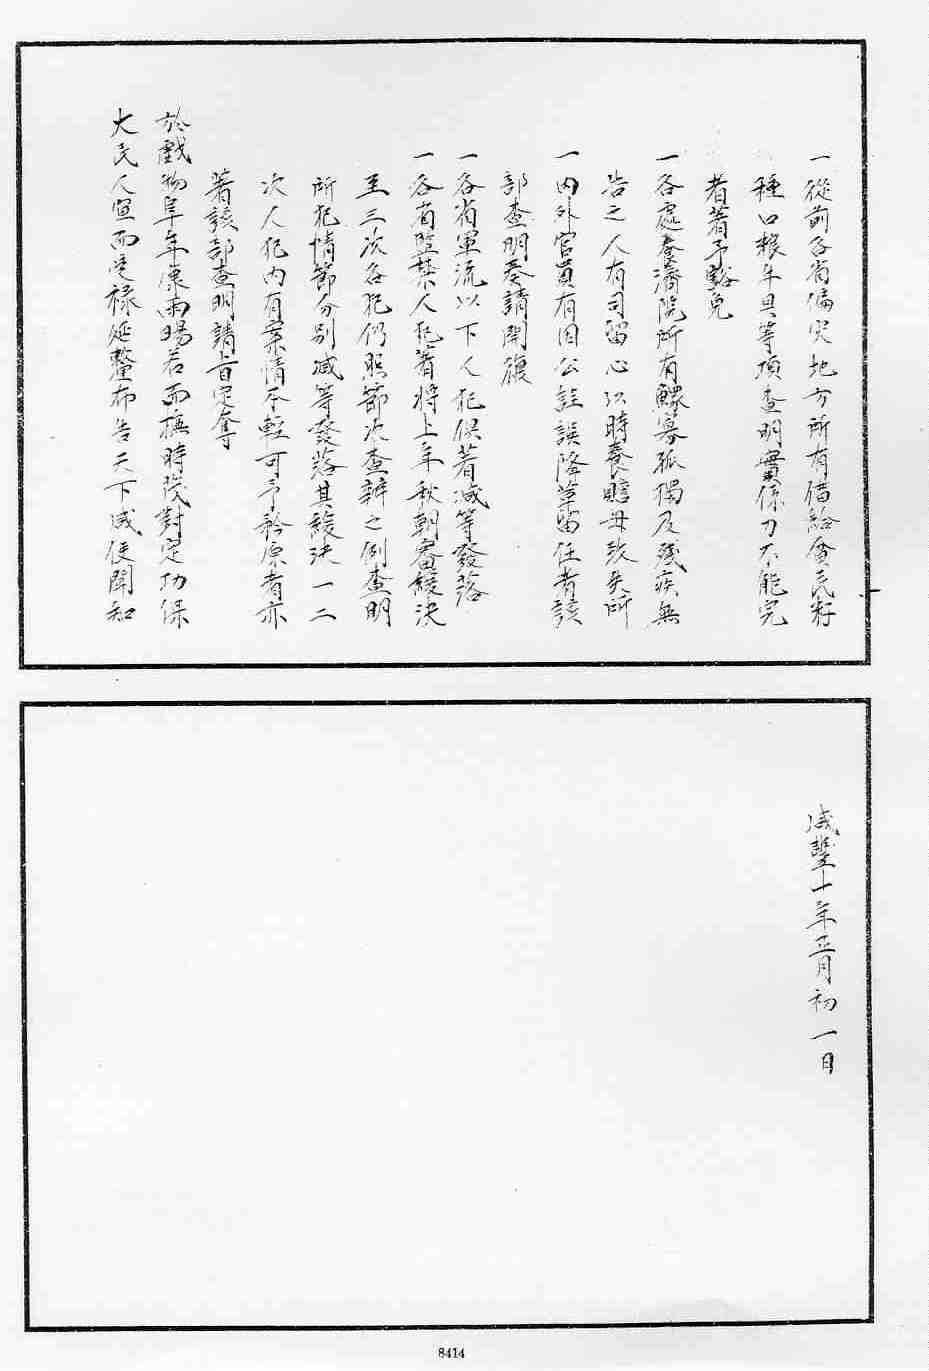 一從前各省偏災地方所有借給貧民籽
種口糧牛具等項查明實係力不能完
者著予豁免
一各處養濟院所有鰥寡孤獨及殘疾無
告之人有司留心以時養贍毋致失所
一內外官員有因公詿誤降革留任者該
部查明奏請開復
一各省軍流以下人犯俱著減等發落
一各省監禁人犯著將上年秋朝審緩決
至三次各犯仍照節次查辦之例查明
所犯情節分別減等發落其緩決一二
次人犯內有案情本輕可予矜原者亦
著該部查明請旨定奪
於戲物阜年康雨暘若而撫時茂對定功保
大民人宜而受祿延釐布告天下咸使聞知
咸豐十年正月初一日
8414